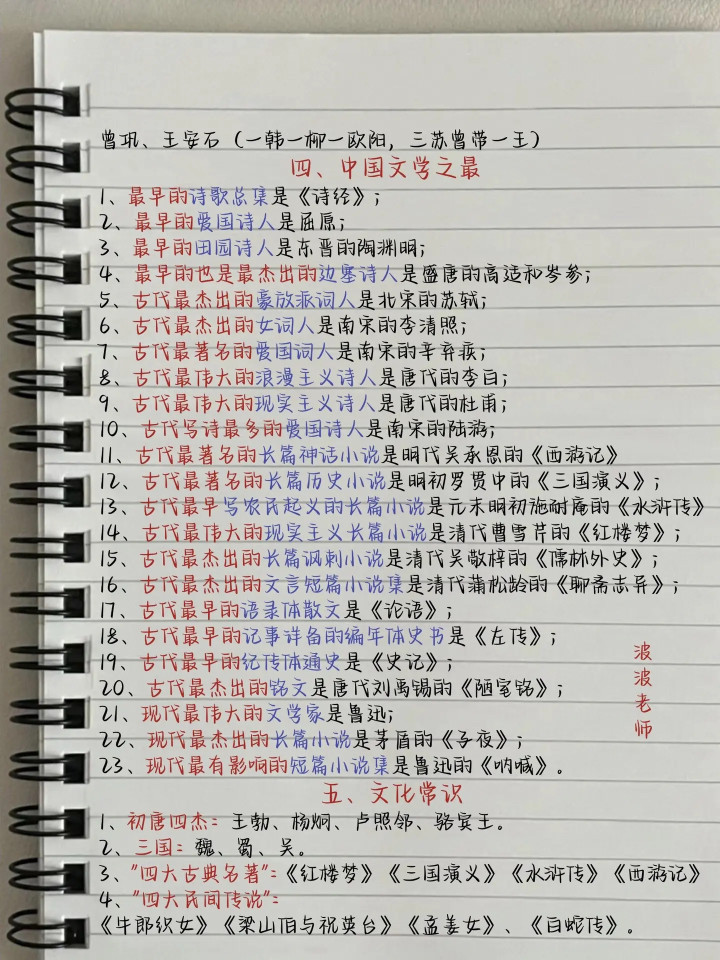 曾巩、王安石（一韩一柳一欧阳，三苏曾带一王）
四、中国文学之最
1、最早的诗歌总集是《诗经》；
2、最早的爱国诗人是屈原；
3、最早的田园诗人是东晋的陶渊明；
4、最早的也是最杰出的边塞诗人是盛唐的高适和岑参；
5、古代最杰出的豪放派词人是北宋的苏轼；
6、古代最杰出的女词人是南宋的李清照；
7、古代最著名的爱国词人是南宋的辛弃疾；
8、古代最伟大的浪漫主义诗人是唐代的李白；
9、古代最伟大的现实主义诗人是唐代的杜甫；
10、古代写诗最多的爱国诗人是南宋的陆游；
11、古代最著名的长篇神话小说是明代吴承恩的《西游记》
12、古代最著名的长篇历史小说是明初罗贯中的《三国演义》；
13、古代最早写农民起义的长篇小说是元末明初施耐庵的《水浒传》
14、古代最伟大的现实主义长篇小说是清代曹雪芹的《红楼梦》；
15、古代最杰出的长篇讽刺小说是清代吴敬梓的《儒林外史》；
16、古代最杰出的文言短篇小说集是清代蒲松龄的《聊斋志异》；
17、古代最早的语录体散文是《论语》；
18、古代最早的记事详备的编年体史书是《左传》；
19、古代最早的纪传体通史是《史记》；
20、古代最杰出的铭文是唐代刘禹锡的《陋室铭》；
21、现代最伟大的文学家是鲁迅；
22、现代最杰出的长篇小说是茅盾的《子夜》；
23、现代最有影响的短篇小说集是鲁迅的《呐喊》。
波波老师
五、文化常识
1、初唐四杰：王勃、杨炯、卢照邻、骆宾王。
2、三国：魏、蜀、吴。
3、"四大古典名著"：《红楼梦》《三国演义》《水浒传》《西游记》
4、"四大民间传说"：
《牛郎织女》《梁山伯与祝英台》《孟姜女》、《白蛇传》。